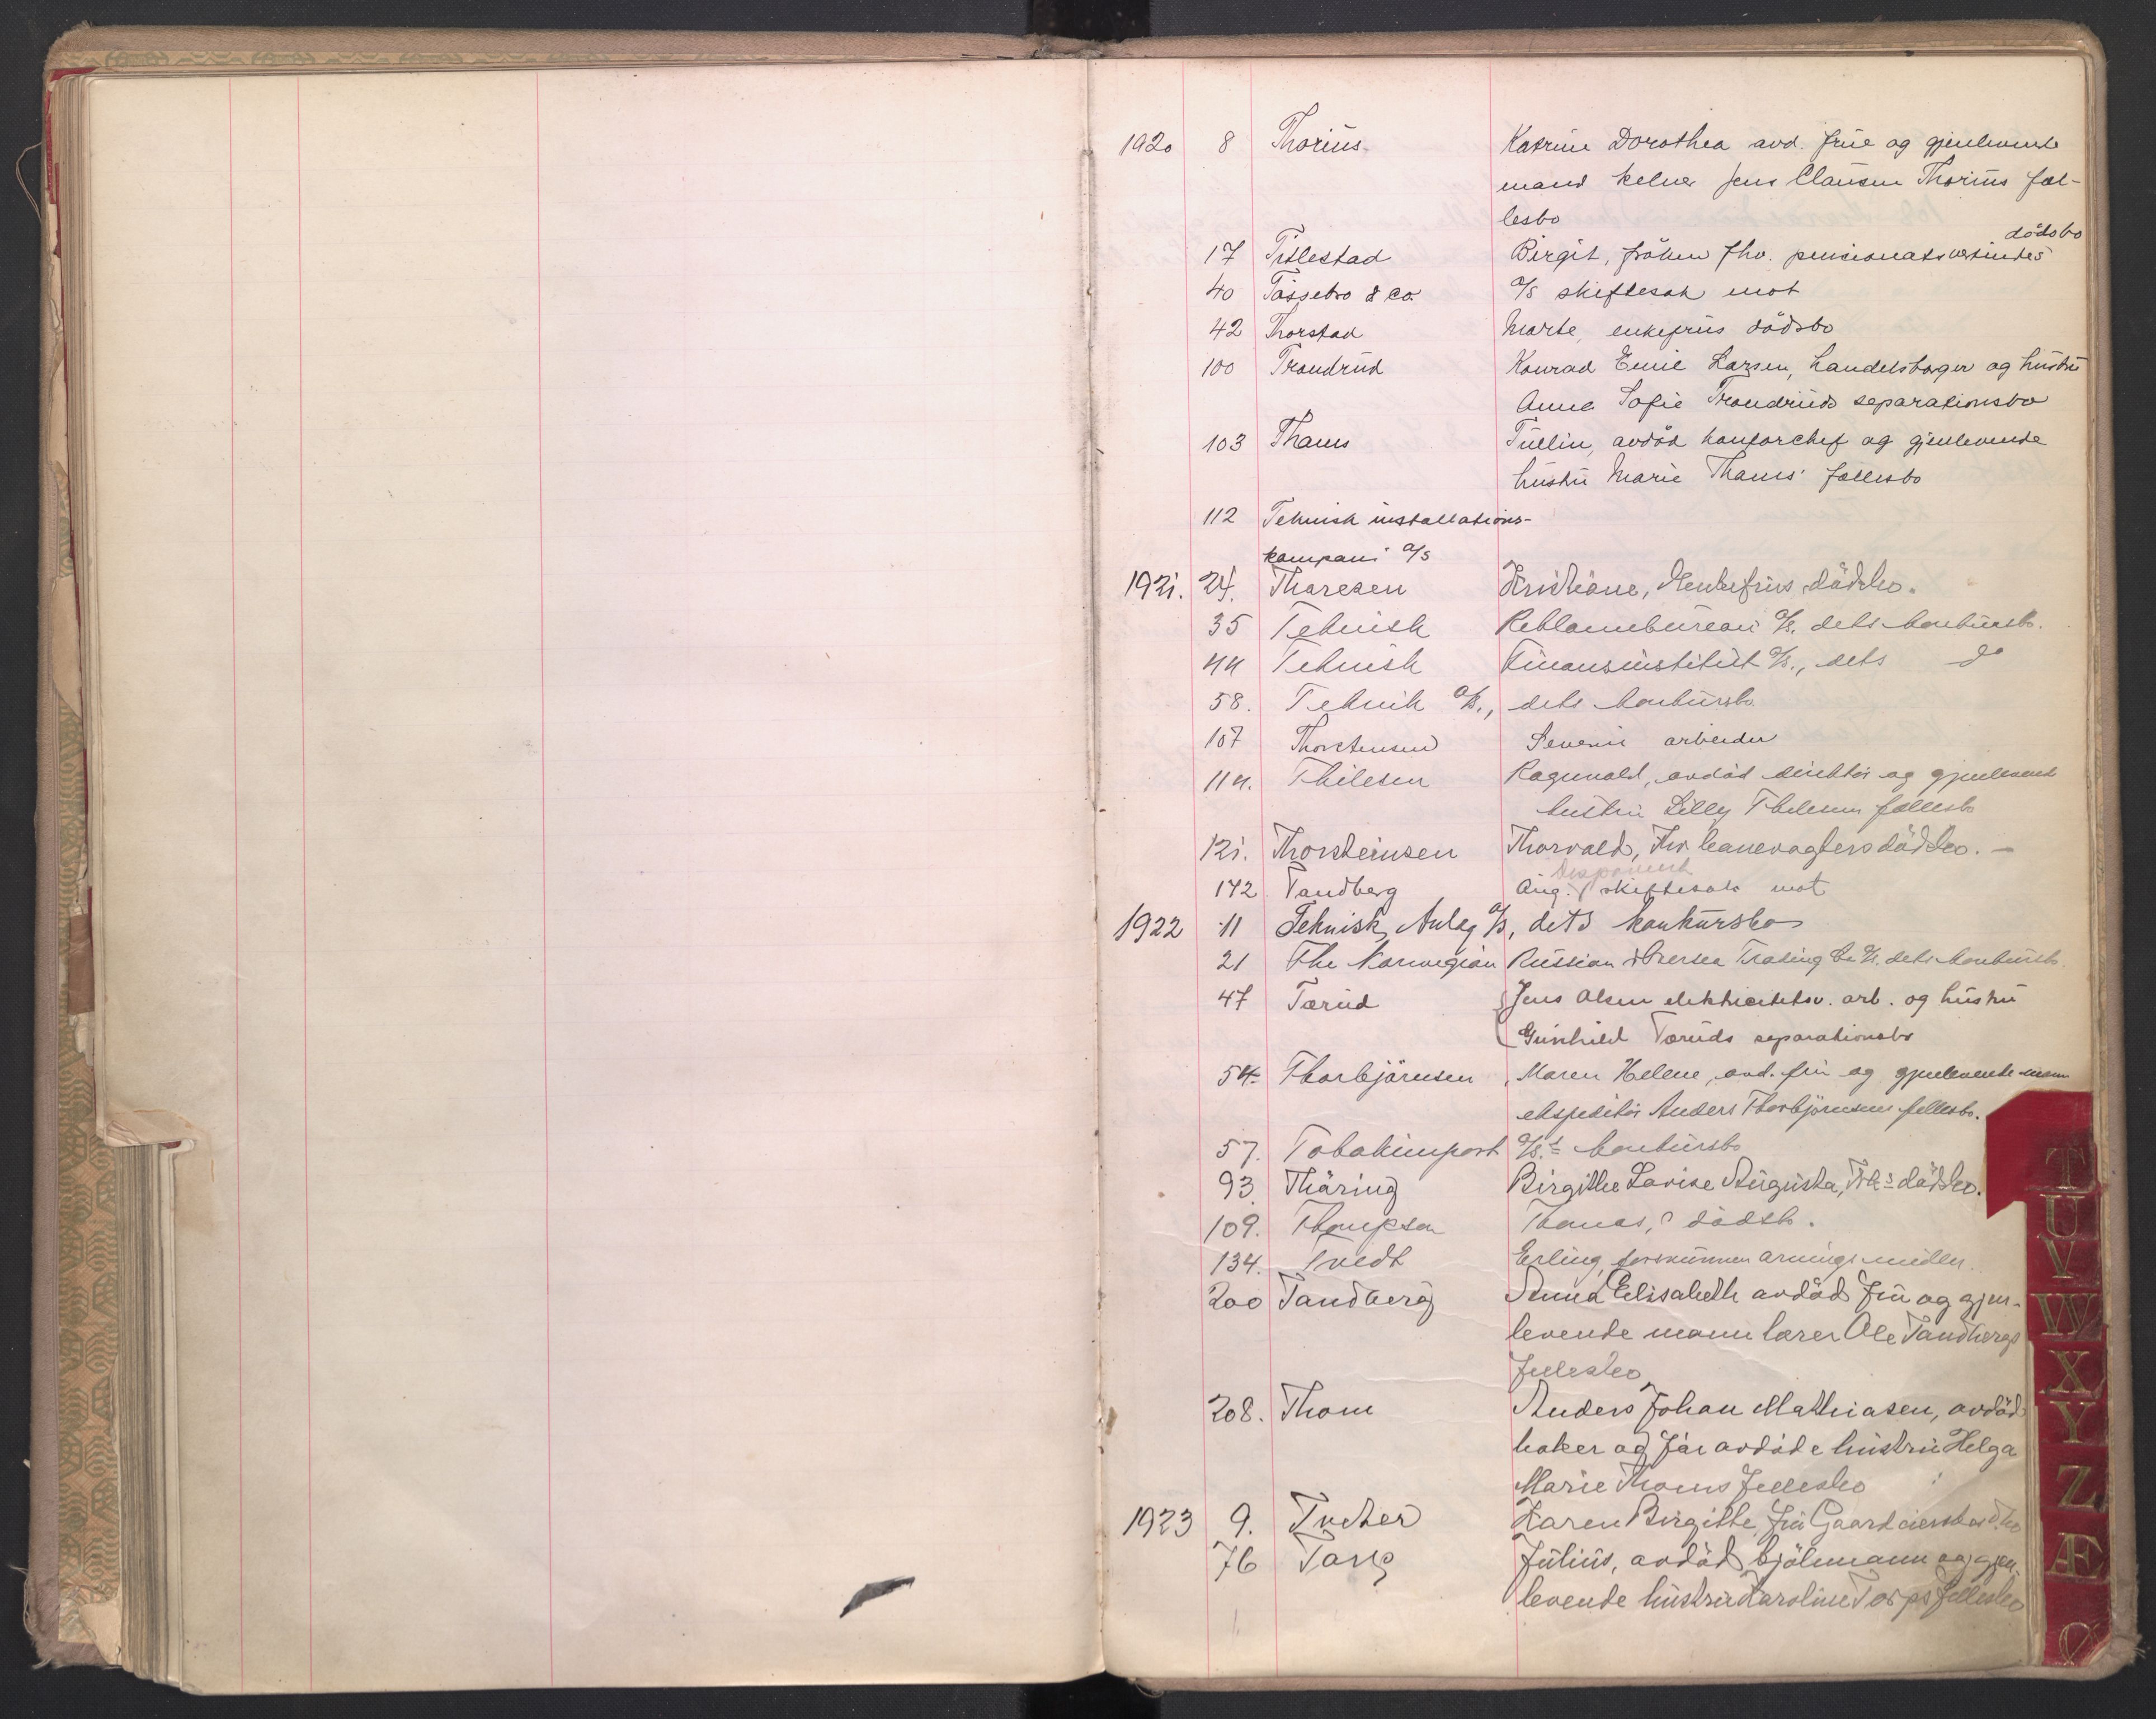 1920 8 Thorius Katrine Dorothea avd. frue og gjenlevende
mand kelner Jens Clausen Thorius fæl-
lesbo
17 Titlestad Birgit, frøken fhv. pensionatsværtindes dødsbo
40 Tossebro & Co. A/S skiftesak mot
42 Thorstad Marte, enkefrus dødsbo
100 Trondrud Konrad Emil Larsen, handelsborger og hustru
Anna Sofie Trondruds separationsbo
103 Thams Tullin, avdød kontorchef og gjenlevende
hustru Marie Thams' fællesbo
112 Teknisk installations-
kompani A/S
1921. 24. Thoresen Kristiane, enkefrus dødsbo.
35 Teknisk Reklamebureau A/S. dets konkursb.
44 Teknisk Finansinstitut A/S., dets do
58. Teknik A/S., dets konkursbo
107 Thorstensen Severin arbeider
114. Thilesen Ragnvald, avdød direktør og gjenlevende
hustru Lilly Thilesens fællesb.
121. Thorsteinsen Thorvald, fhv. banevogters dødsbo. -
142 Tandberg Aug. disponent skiftesak mot
1922 11 Teknisk Anlæg A/S, dets konkursbo
21 The Norwegian Russian & Oversea Trading Co A/S. dets konkursb.
47 Tærud Jens Olsen elektricitetsv. arb. og hustru
Gunhild Tæruds separationsbo
54. Thorbjørnsen, Maren Helene, avd. fru og gjenlevende mann
ekspeditør Anders Thorbjørnsens fellesbo.
57. Tobakimport A/S.s konkursbo
93. Thäring Birgithe Lovise Augusta, Frk.s dødsbo.
109. Thompson Thomas, s dødsb.
134. Tvedt Erling,
200 Tandberg Anna Elisabeth avdød fru og gjen-
levende mann lærer Ole Tandbergs
fellesbo
208. Thom Anders Johan Mathiasen, avdød
baker og før avdøde hustru Helga
Marie Thoms fellesbo
1923 9. Tveter Karen Birgitte, fru
76 Torp Julius, avdød kjølmann og gjen-
levende hustru Karoline Torps fellesbo
T
U
V
W
X
Y
Z
Æ
Ø